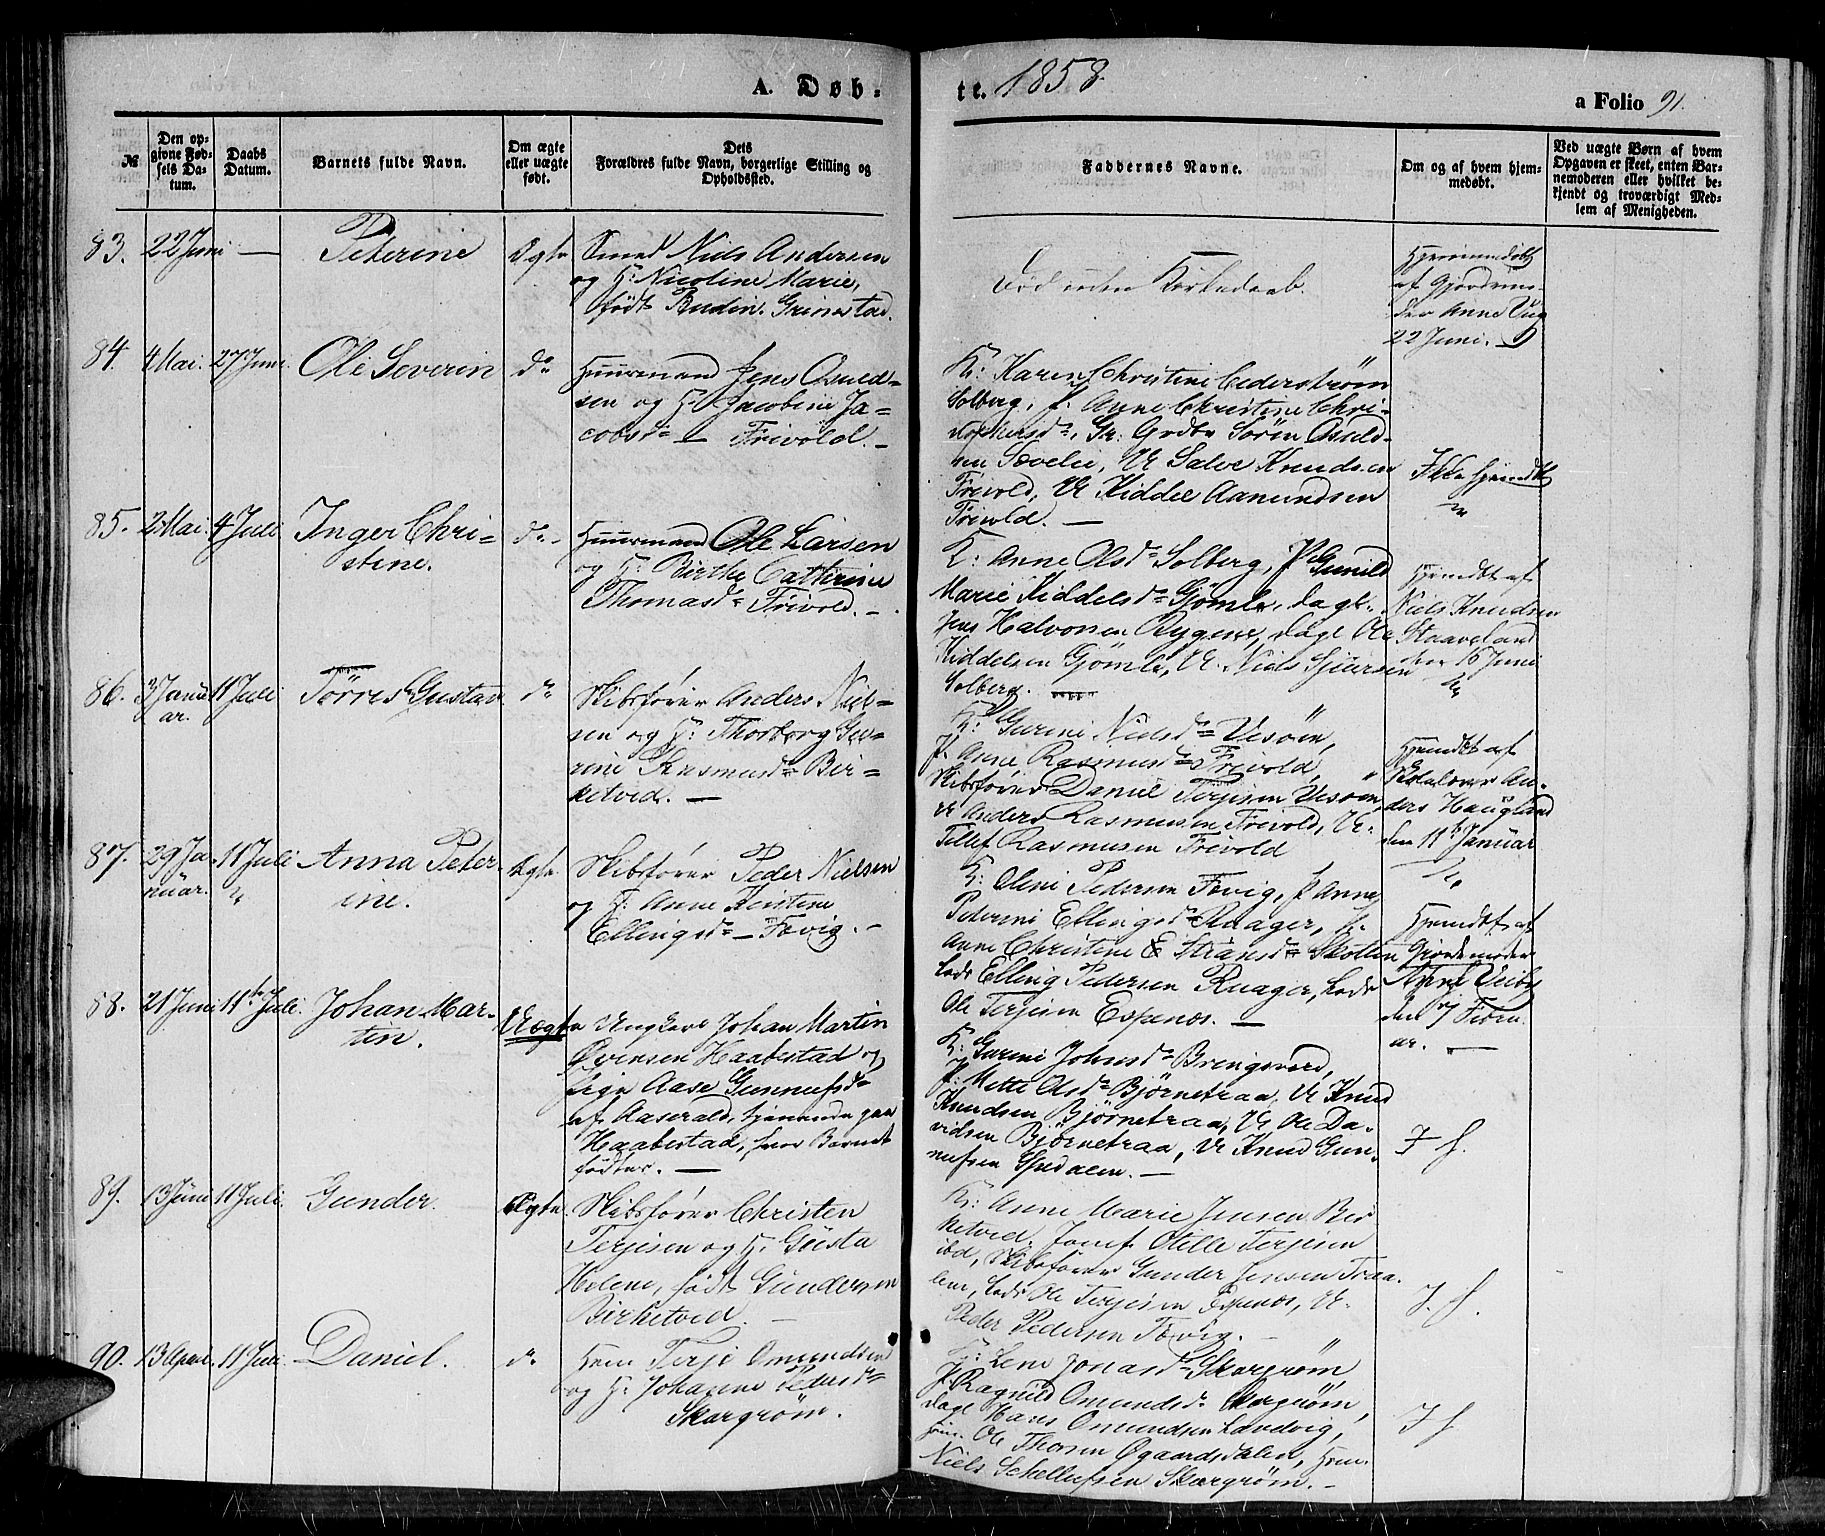 A. Døb-
te. 1858.
a Folio 91.
№
Den op-
givne Fød-
sels Da-
tum.
Daabs
Datum.
Barnets fulde Navn.
Om ægte
eller uægte
født.
Dets
Forældres fulde Navn, borgerlige Stilling og
Opholdssted.
Faddernes Navne.
Om og af hvem hjem-
medøbt.
Ved uægte Børn af hvem
Opgaven er skeet, enten Bar-
nemoderen eller hvilket be-
kjendt og troværdigt Med-
lem af Menigheden.
83. 22 Juni — Peterine Ægte
Smed Niels Andersen
og H: Nicoline Marie,
født Rudin. Grimstad.
Død uden Kirkedaab.
Hjemmedøbt
af Gjordemo-
der Anne
22 Juni.
84. 4 Mai. 27 Juni Ole Severin do
Huusmand Jens Osuld-
sen og H. Jacobine Ja-
cobsd. — Frivold. —
K: Karen Christine Cederstrøm
Solberg, P. Anne Christine Chri-
stophersd, Gr: Godtz Sørin Osuld-
sen Sævelie, Ue Salve Knudsen
Frivold, Ue Kiddel Aamundsen
Frivold. —
Ikke hjemdbt
85. 2 Mai. 4 Juli Inger Chri-
stine. do
Huusmand Ole Larsen
og H: Birthe Cathrine
Thomasd Frivold. —
K: Anne Olsd Solberg, P. Gunild
Marie Kiddelsd Gjømle, dagl.
Jens Halvorsen Rygene, dagl Ole
Kiddelsen Gjømle, Ue. Niels Sjursen
Solberg.
Hjemdbt af
Niels Knudsen
Staaveland
den 16 Juni
86. 3 Janu-
ar. 11 Juli Tørres Gustav do
Skibsfører Anders Niel-
sen og H: Thorborg Gu-
rine Rasmusd Bir-
ketved. —
K: Gurine Nielsd Vesøen,
P. Anne Rasmusd Frivold,
Skibsfører Daniel Terjesen Vesøen,
Ue Anders Rasmusen Frivold, Ue.
Tellef Rasmusen Frivold
Hjemdbt af
An-
ders Haugland
den 11te Januar
87. 29 Ja-
nuar. 11 Juli Anna Peter-
ine. Ægte
Skibsfører Peder Nielsen
og H: Anne Kirstine
Ellingsd — Fævig. —
K: Oline Pedersen Fævig, P Anne
Peterine Ellingsd Ruager, P.
Anne Christine E. Skotten
Lods Elling Pedersen Ruager, Lods
Ole Terjesen Espenes. —
Hjemdbt af
Gjordemoder
den 7 Febru-
ar. —
88. 21 Juni 11te Juli. Johan Mar-
tin. Uægte
Ungkarl Johan Martin
Evensen Haabestad og
Pige Aase Gunnufsd
af Aaserald, tjenende paa
Haabestad, hvor Barnet
fødtes. —
K: Gurine Johnsd Bringsværd,
P. Mette Olsd Bjørnetraa, Ue Knud
Knudsen Bjørnetraa, Ue Ole Da-
vidsen Bjørnetraa, Ue Knud Gun-
nufsen —
I h.
89. 13 Juni 11 Juli. Gunder. Ægte
Skibsfører Christen
Terjesen og H. Gusta
Helene, født Gundersen
Birketved. —
K: Anne Marie Jensen Bir-
ketved, Jomf. Otelle Terjesen
ibd, Skibsfører Gunder Jensen Traa-
len, Lods Ole Terjesen Espenes, Ue.
Peder Pedersen Fævig. —
I. h.
90. 13 April 11 Juli. Daniel. do
Hmm Terje Omundsen
og H. Johanne Pedersd
Skargrøm.
K: Lene Jonasd Skargrøm,
P. Ragnild Omundsd Skargrøm,
dagl Hans Omundsen Landvig,
Ole Thorsen Øgaardsdalen, Hmm.
Niels Schellufsen Skargrøm. —
I h